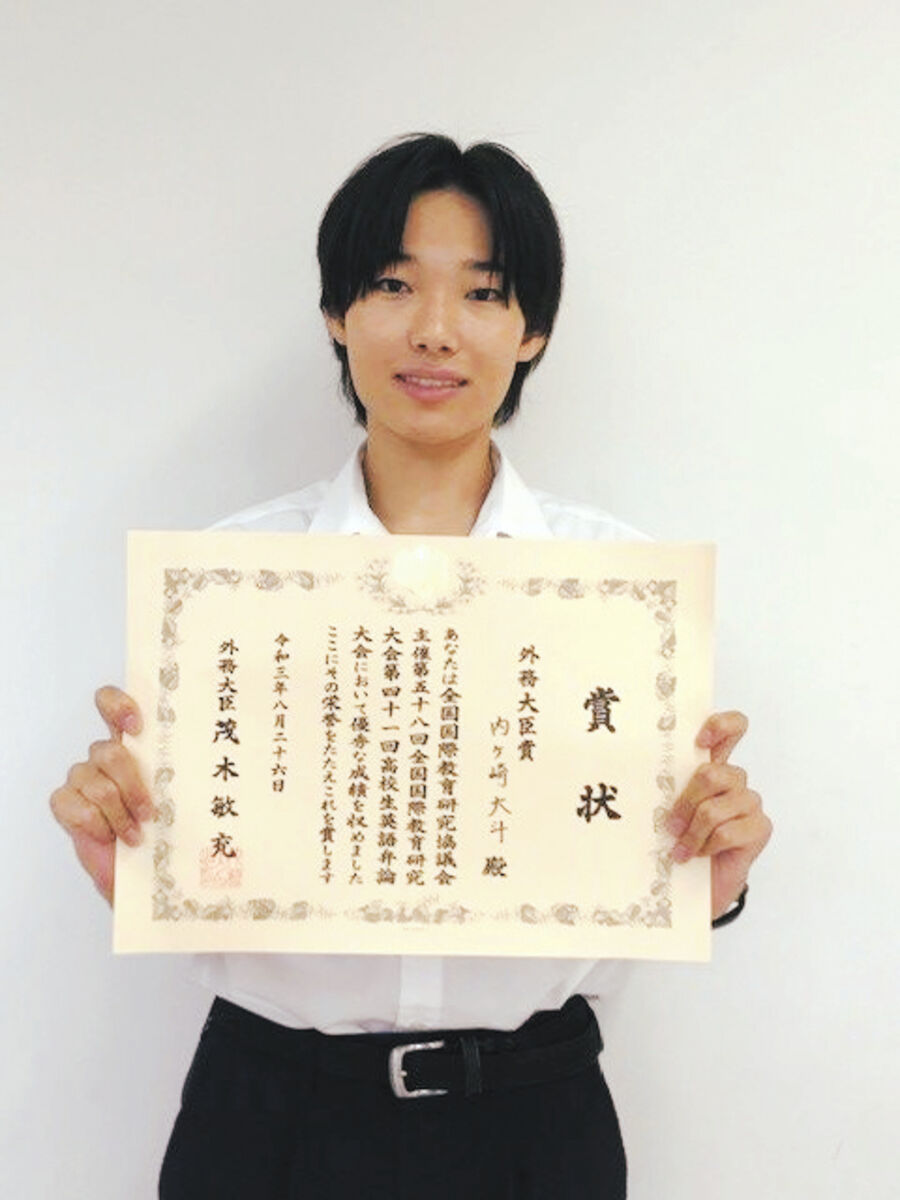 賞状
外務大臣賞
内ヶ崎大斗殿
あなたは全国国際教育研究協議会
主催第五十八回全国国際教育研究
大会第四十一回高校生英語弁論
大会において優秀な成績を収めました
ここにその栄誉をたたえこれを賞します
令和三年八月二十六日
外務大臣茂木敏充